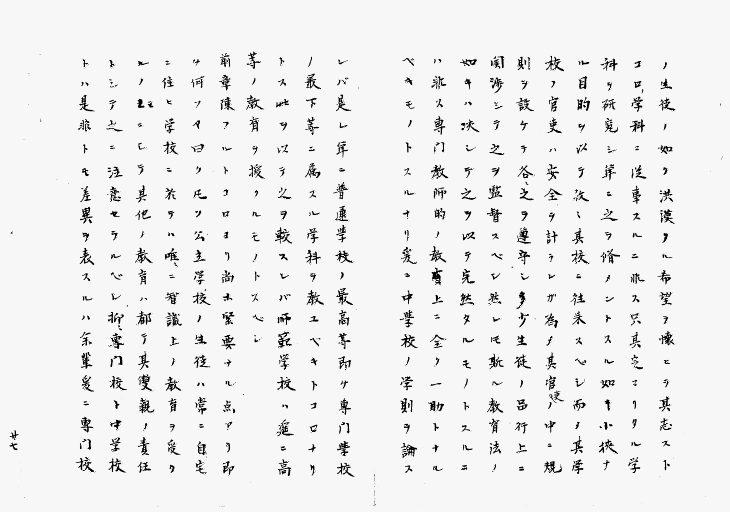 ノ生徒ノ如ク洪漠タル希望ヲ懐ニシテ其志スト
コロノ学科ニ従事スルニ非ス只其定マリタル学
科ヲ研究シ単ニ之ヲ修メントスル如キ小挾ナ
ル目的ヲ以テ故ニ其校ニ往来スベシ而メ其学
校ノ官吏ハ安全ヲ計ランガ為メ其官吏ノ中ニ規
則ヲ設ケテ各之ヲ遵奉シ多少生徒ノ品行上ニ
関渉シテ之ヲ監督スベシ然レ𪜈斯ル教育法ノ
如キハ決シテ之ヲ以テ完然タルモノトスルニ
ハ非ス専門教師的ノ教育上ニ全ク一助トナル
ベキモノトスルナリ爰ニ中学校ノ学則ヲ論ス
レバ是レ第二普通学校ノ最高等即ケ専門学校
ノ最下等ニ属スル学科ヲ教ユベキトコロナリ
トス此ヲ以テ之ヲ較スレバ師範学校ハ遥ニ高
等ノ教育ヲ授クルモノトスベシ
前章陳フルトコロヨリ尚ホ緊要ナル点アリ即
チ何ソヤ曰ク凡ソ公立学校ノ生徒ハ常ニ自宅
ニ住ヒ学校ニ於テハ唯ニ智識上ノ教育ヲ受ク
ルノミニシテ其他ノ教育ハ都テ其双親ノ責任
トシテ之ニ注意セラルベシ抑専門校ト中学校
トハ是非トモ差異ヲ表スルハ余輩爰ニ専門校
廿七